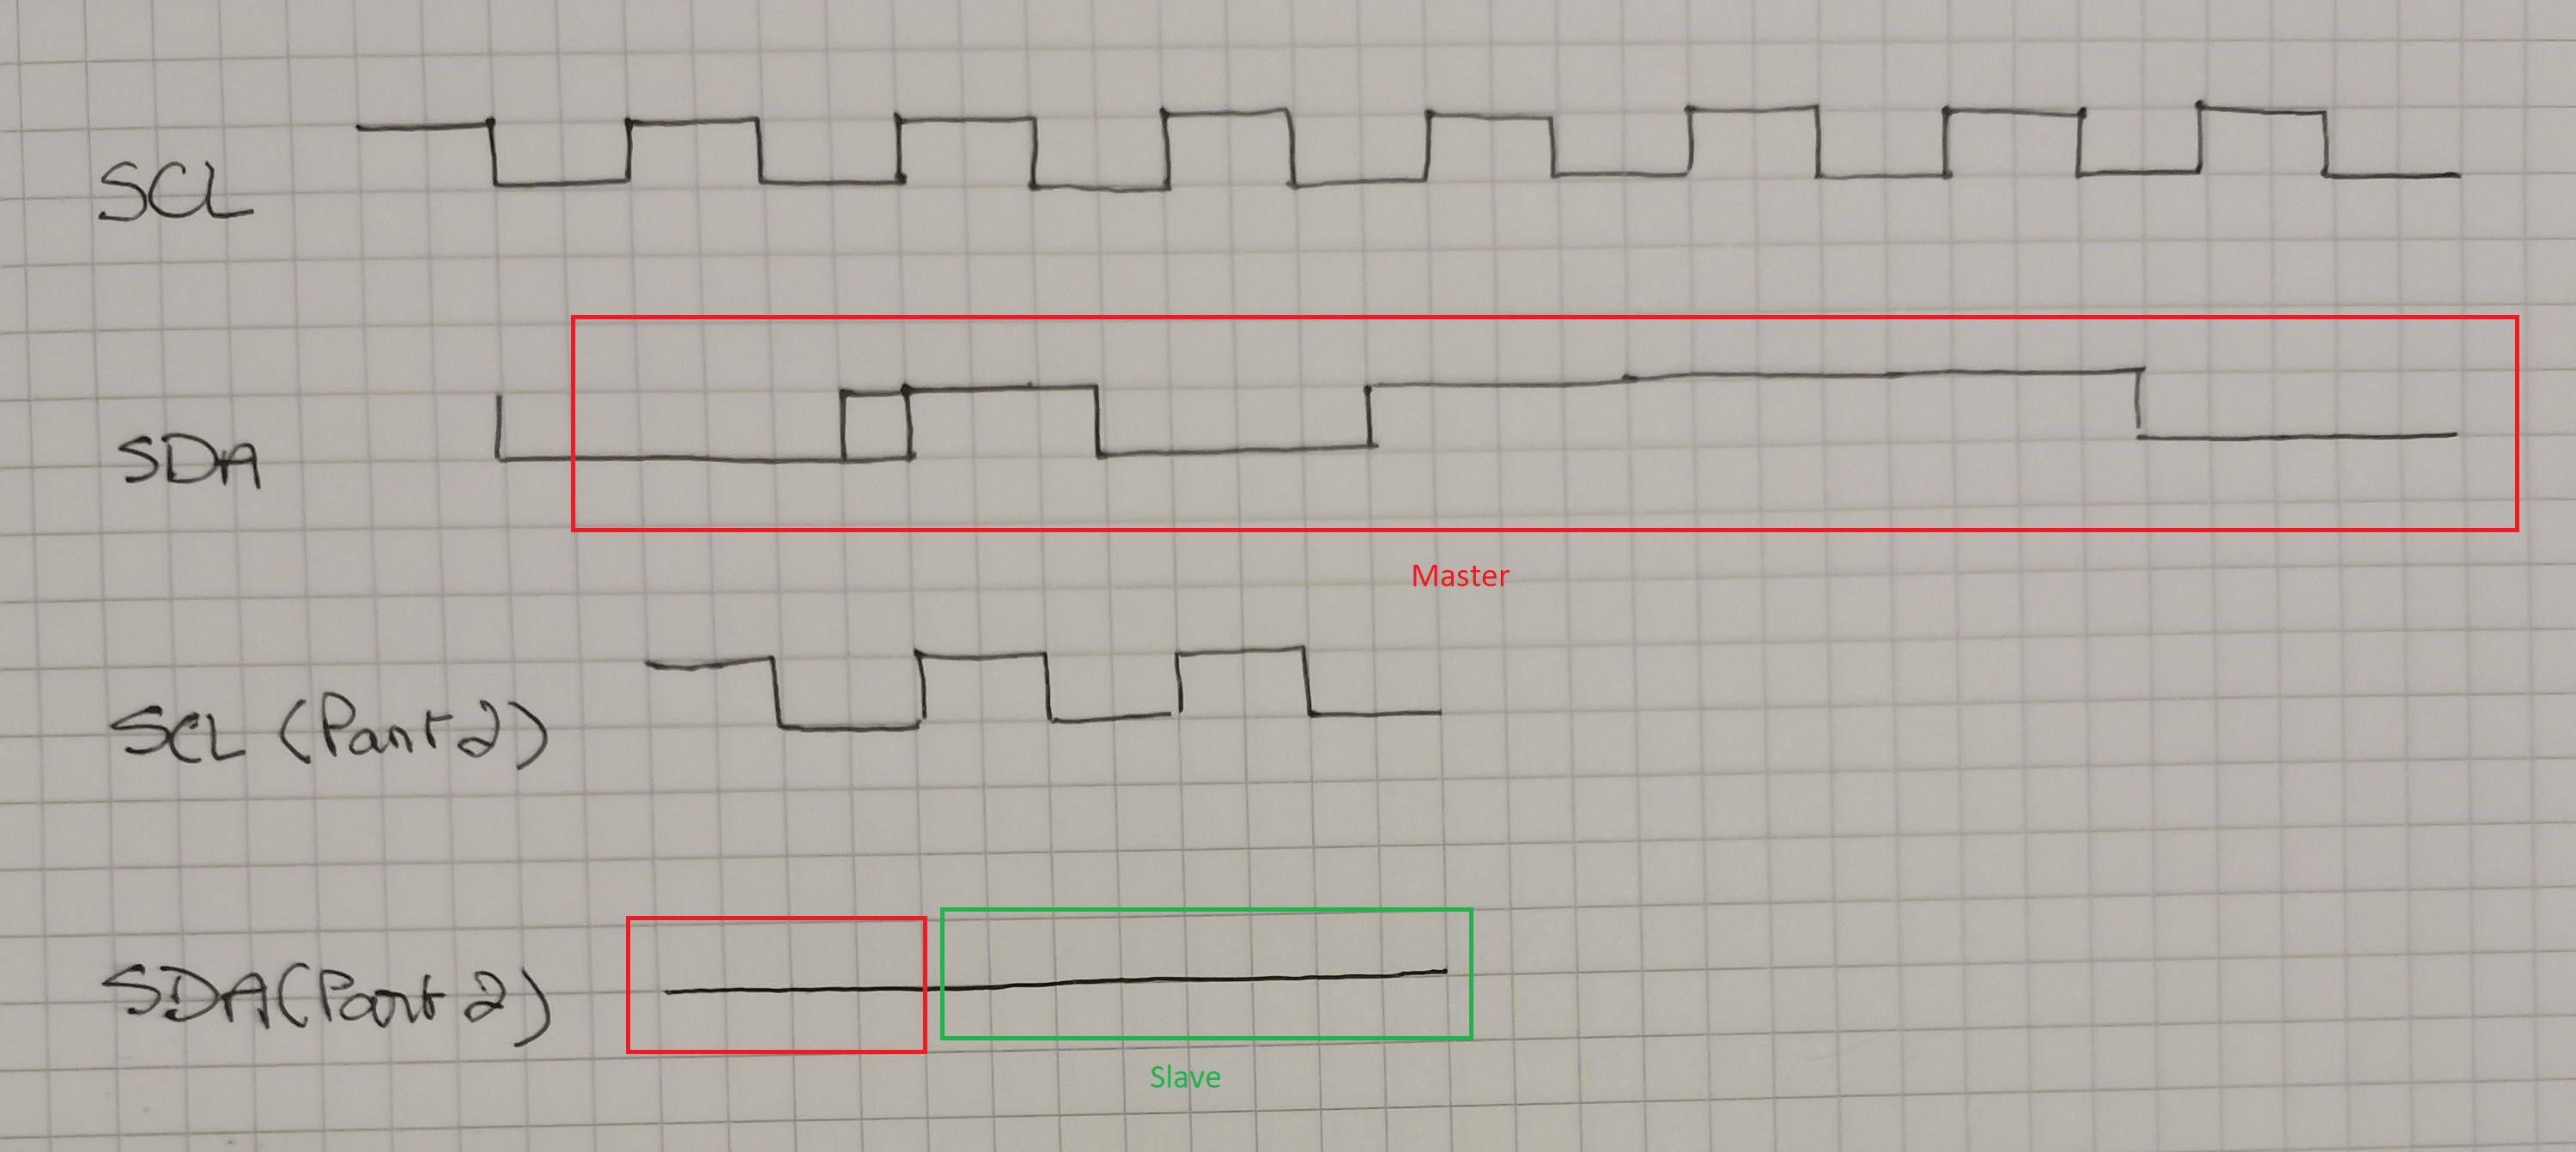 SCL
SDA
Master
SCL (Part 2)
SDA (Part 2)
Slave